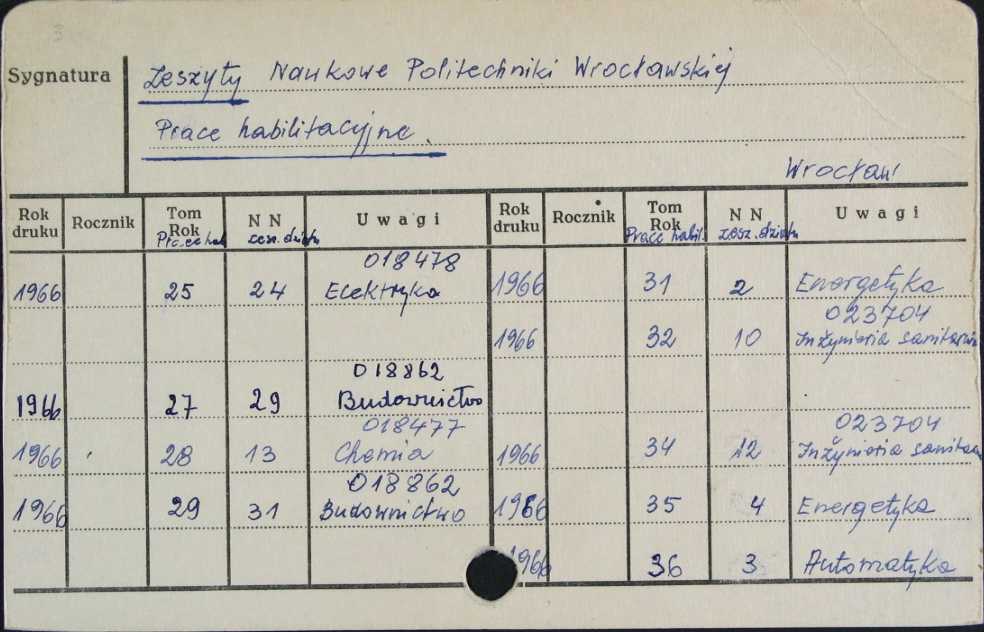 Sygnatura
Zeszyty Naukowe Politechniki Wrocławskiej
Prace habilitacyjne
Wrocław
Rok druku Rocznik Tom Rok Prace hab. N N zesz. działu Uwagi Rok druku Rocznik Tom Rok Prace habil. N N zesz. działu Uwagi
018478
1966 25 24 Elektryka 1966 31 2 Energetyka
023704
1966 32 10 Inżynieria sanitarna
018862
1966 27 29 Budownictwo
018477 023704
1966 28 13 Chemia 1966 34 12 Inżynieria sanitar
018862
1966 29 31 Budownictwo 1966 35 4 Energetyka
1966 36 3 Automatyka